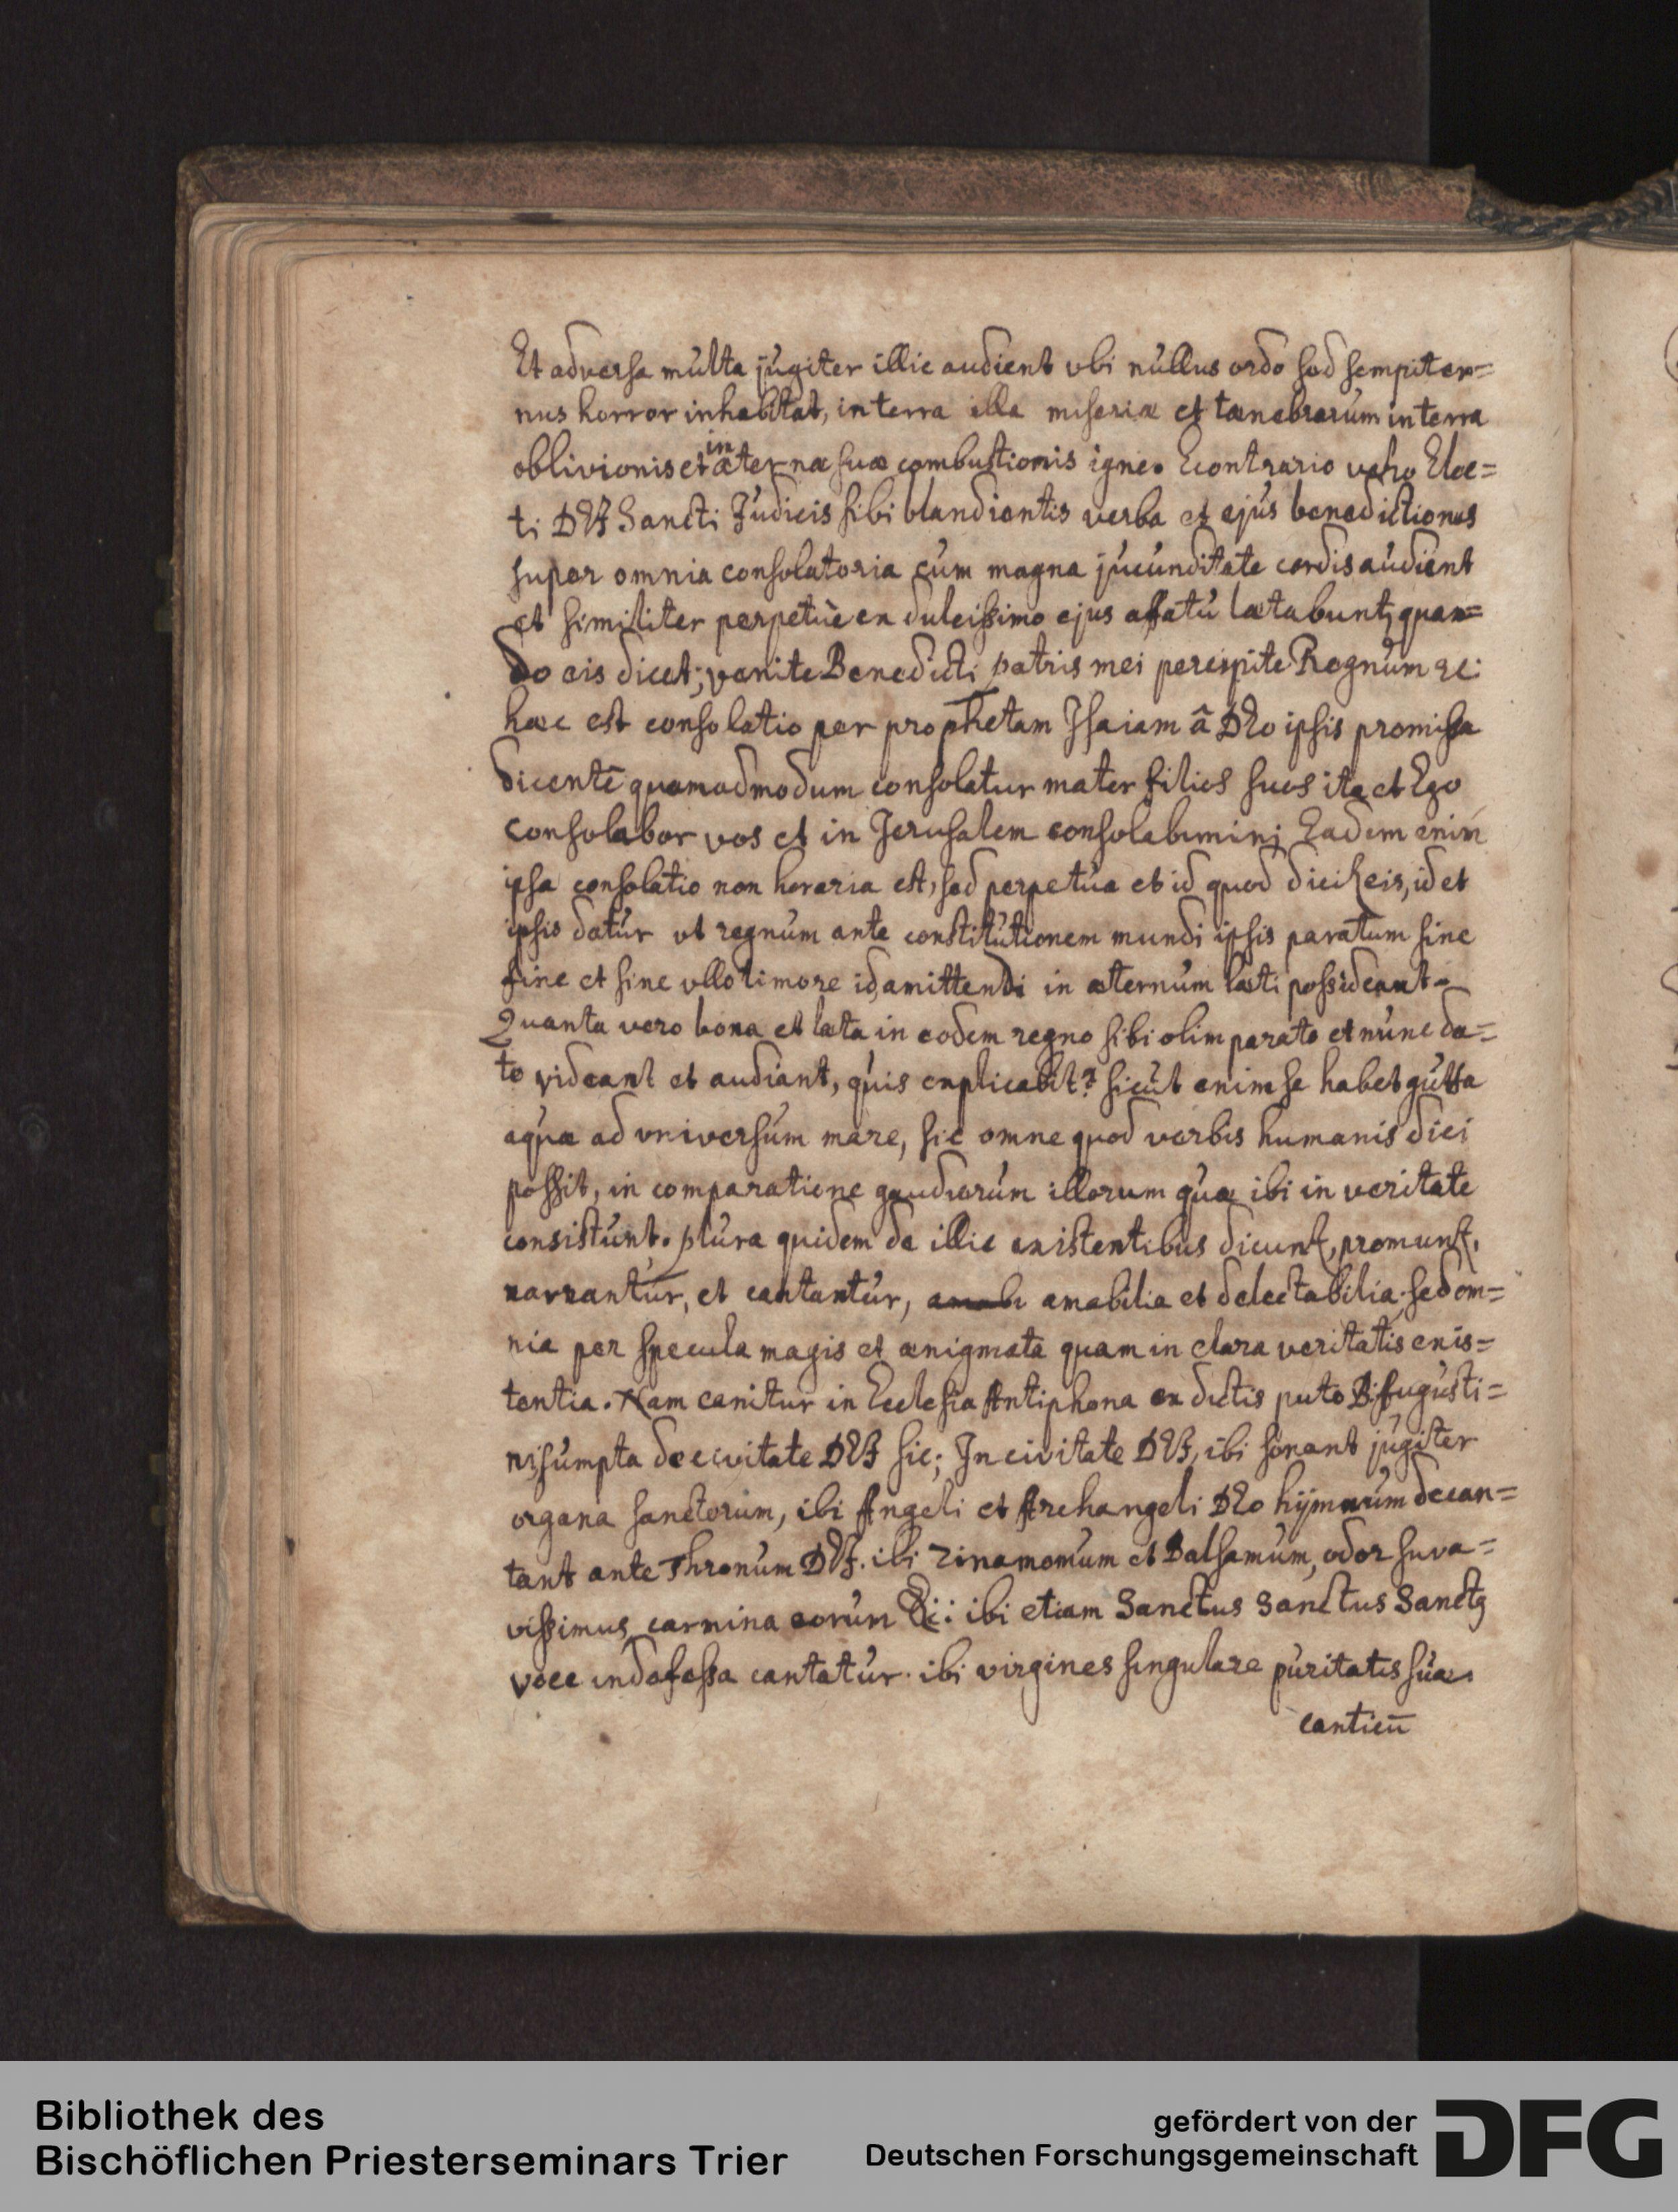 Et adversa multa jugiter illic audient vbi nullus ordo sed sempiter=
nus horror inhabitat, in terra illa miseriæ et tænebrarum in terra
oblivionis et in æternæ suæ combustionis igne. Econtrario vero Elec=
ti DEI Sancti Judicis sibi blandientis verba et ejus benedictiones
super omnia consolatoria cum magna jucunditate cordis audient
et similiter perpetuè ex dulcissimo ejus affatu lætabunt, quan=
do eis dicet; venite Benedicti patris mei percipite Regnum &c:
hæc est consolatio per prophetam Isaiam â DEo ipsis promissa
dicentē quemadmodum consolatur mater filios suos ita et Ego
consolabor vos et in Jerusalem consolabimini Eadem enim
ipsa consolatio non horaria est, sed perpetua et id quod dicit eis, id et
ipsis datur vt regnum ante constitutionem mundi ipsis paratum sine
fine et sine vllo timore id amittendi in æternum læti possideant.
Quanta vero bona et læta in eodem regno sibi olim parato et nunc da=
to videant et audiant, quis explicabit? sicut enim se habet gutta
aquæ ad vniversum mare, sic omne quod verbis humanis dici
possit, in comparatione gaudiorum illorum quæ ibi in veritate
consistunt. plura quidem de illic existentibus dicunt, promunt,
narrantur, et cantantur, amabi amabilia et delectabilia. sed om=
nia per specula magis et ænigmata quam in clara veritatis exis=
tentia. Nam canitur in Ecclesia Antiphona ex dictis puto B: Augusti=
ni sumpta de civitate DEI sic; In civitate DEI, ibi sonant jugiter
organa sanctorum, ibi Angeli et Archangeli DEo hÿmnum decan=
tant ante Thronum DEI. ibi Zinamomum et Balsamum, odor suva=
vissimus carmina eorum &c: ibi etiam Sanctus Sanctus Sanctꝯ
voce indefessa cantatur. ibi virgines singulare puritatis suæ
canticū
Bibliothek des
Bischöflichen Priesterseminars Trier
gefördert von der
Deutschen Forschungsgemeinschaft
DFG